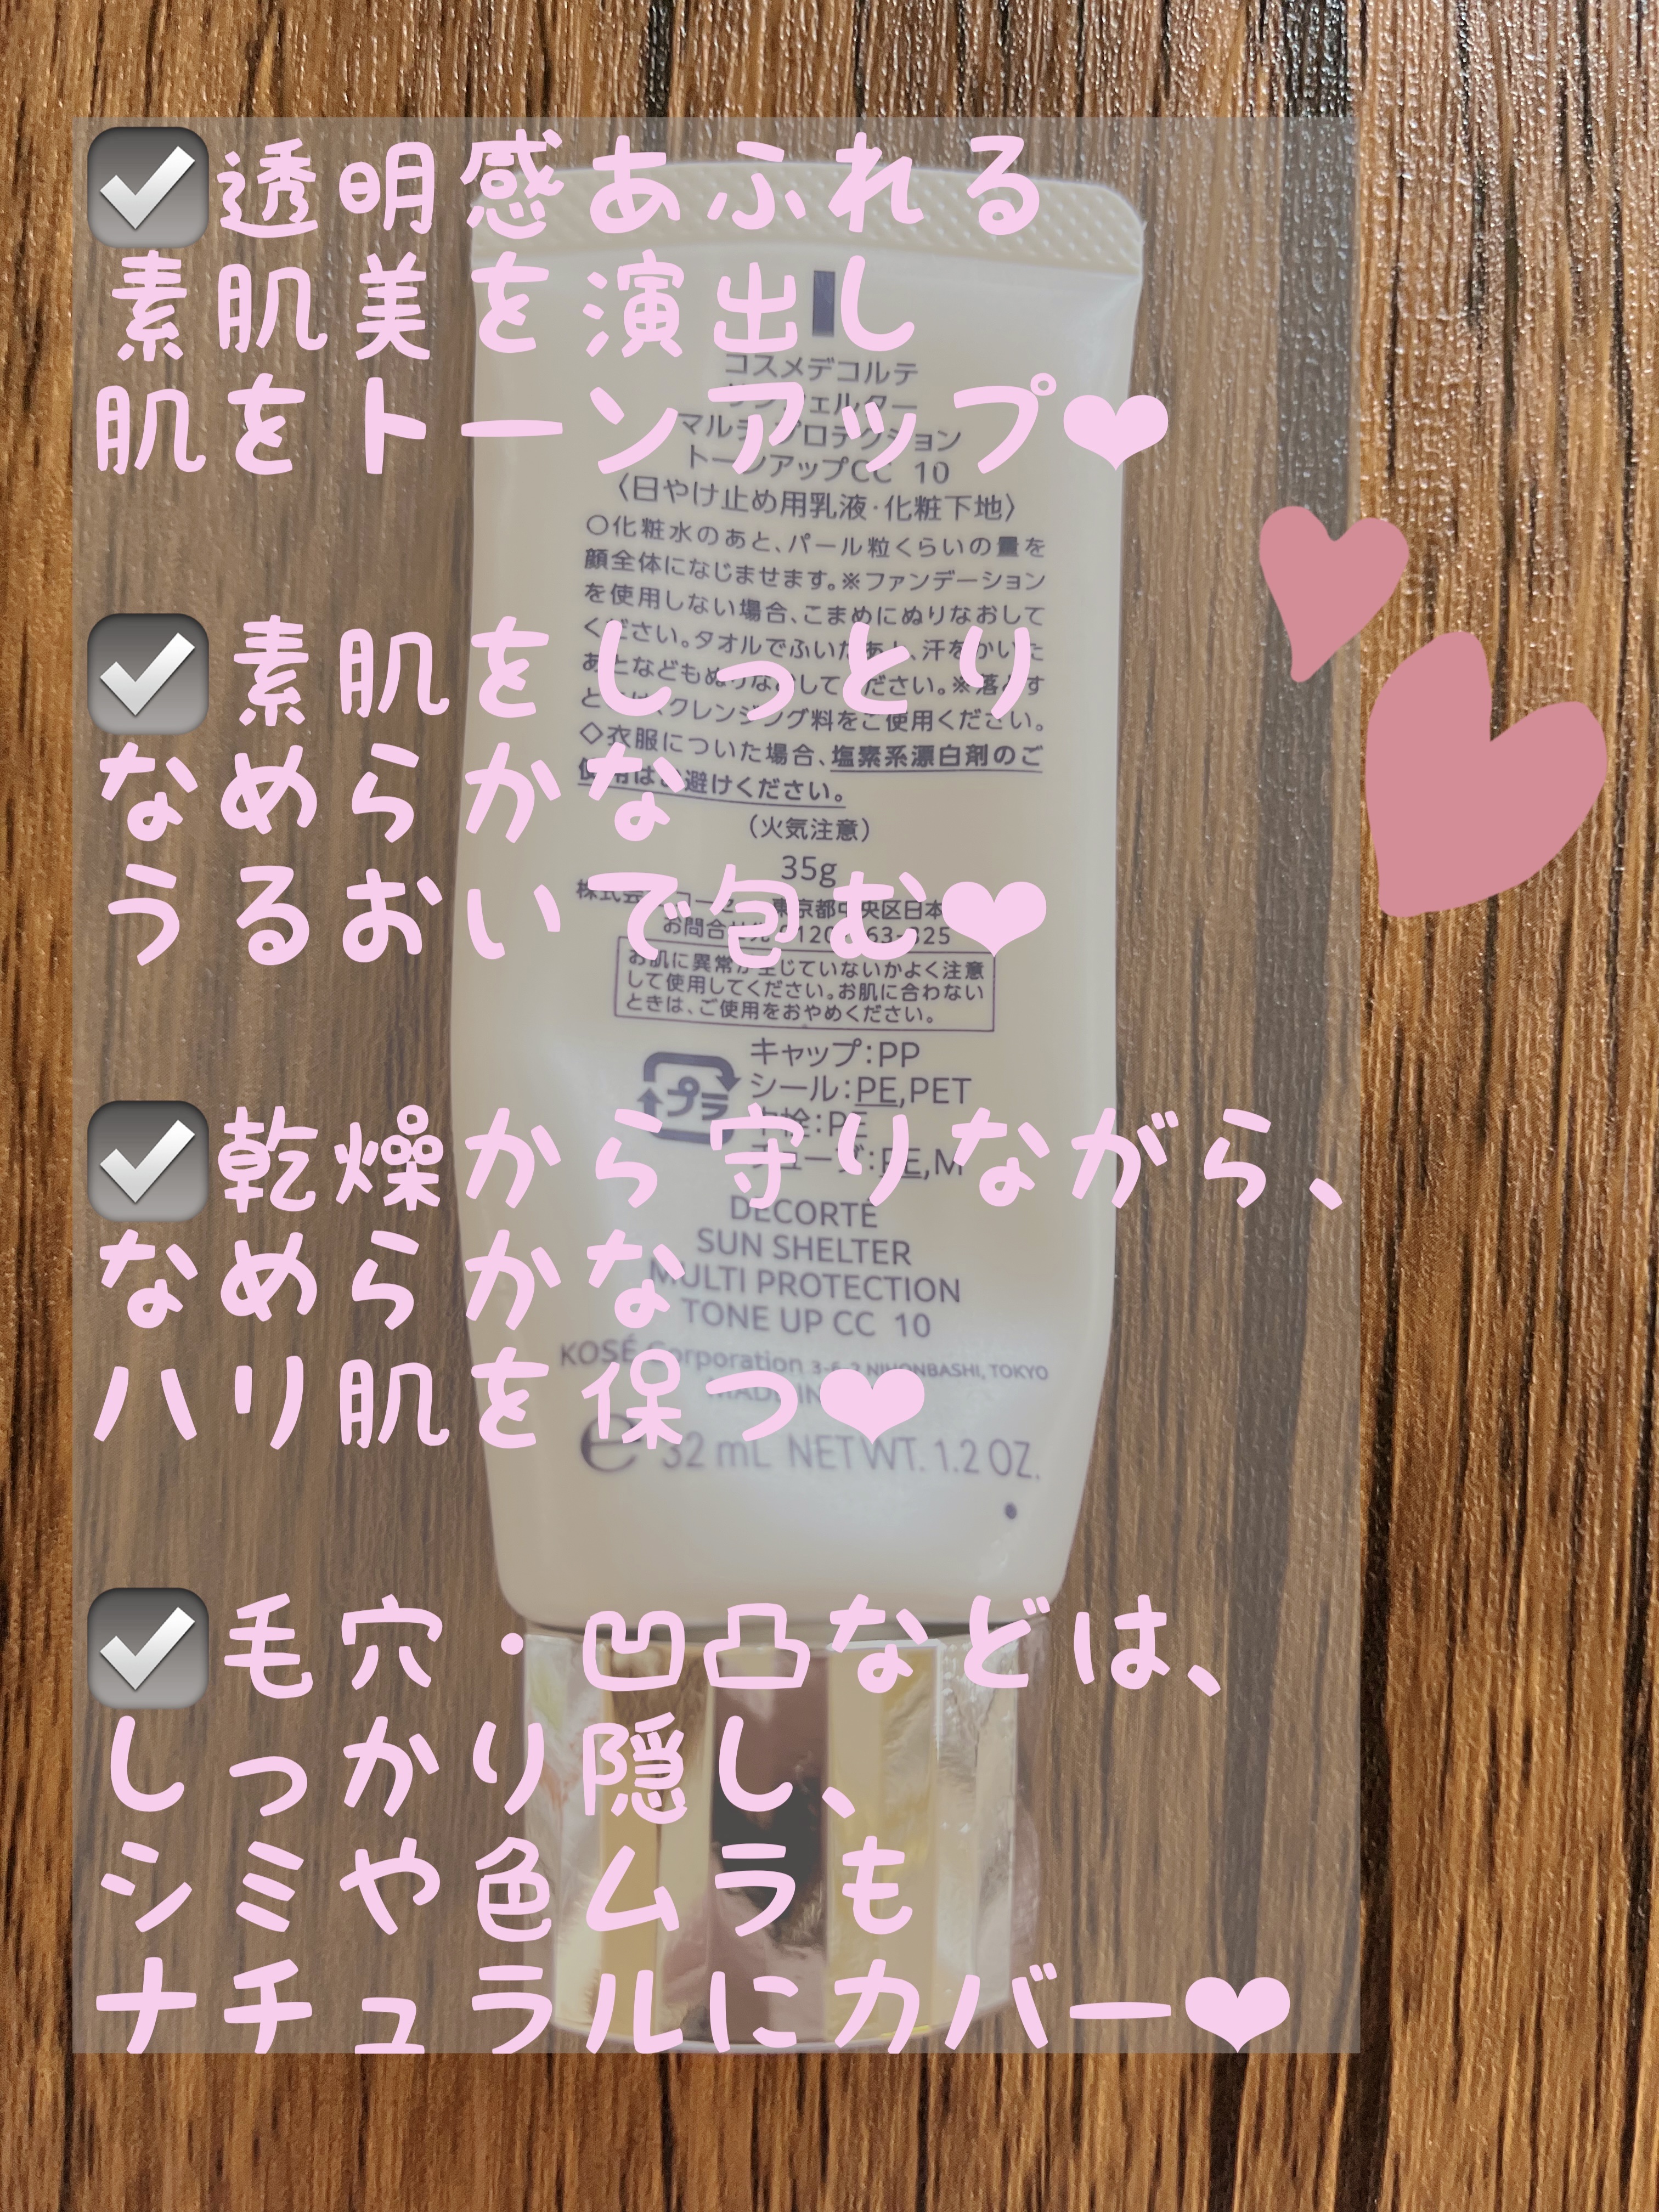 ☑透明感あふれる
素肌美を演出し
肌をトーンアップ❤
☑素肌をしっとり
なめらかな
うるおいで包む❤
☑乾燥から守りながら、
なめらかな
ハリ肌を保つ❤
☑毛穴・凹凸などは、
しっかり隠し、
シミや色ムラも
ナチュラルにカバー❤
コスメデコルテ
マルチ プロテクション
トーンアップCC 10
〈日やけ止め用乳液・化粧下地〉
○化粧水のあと、パール粒くらいの量を
顔全体になじませます。※ファンデーション
を使用しない場合、こまめにぬりなおして
ください。タオルでふいたあと、汗をかいた
あとなどもぬりなおしてください。※落とす
クレンジング料をご使用ください。
◇衣服についた場合、塩素系漂白剤のご
使用はお避けください。
(火気注意)
35g
東京都中央区日本
お問合せ先
お肌に異常が生じていないかよく注意
して使用してください。お肌に合わない
ときは、ご使用をおやめください。
プラ
キャップ:PP
シール:PE,PET
中栓:PE
チューブ:PE,M
DECORTÉ
SUN SHELTER
MULTI PROTECTION
TONE UP CC 10
KOSÉ Corporation NIHONBASHI, TOKYO
MADE IN
e 32 mL NET WT. 1.2 OZ.